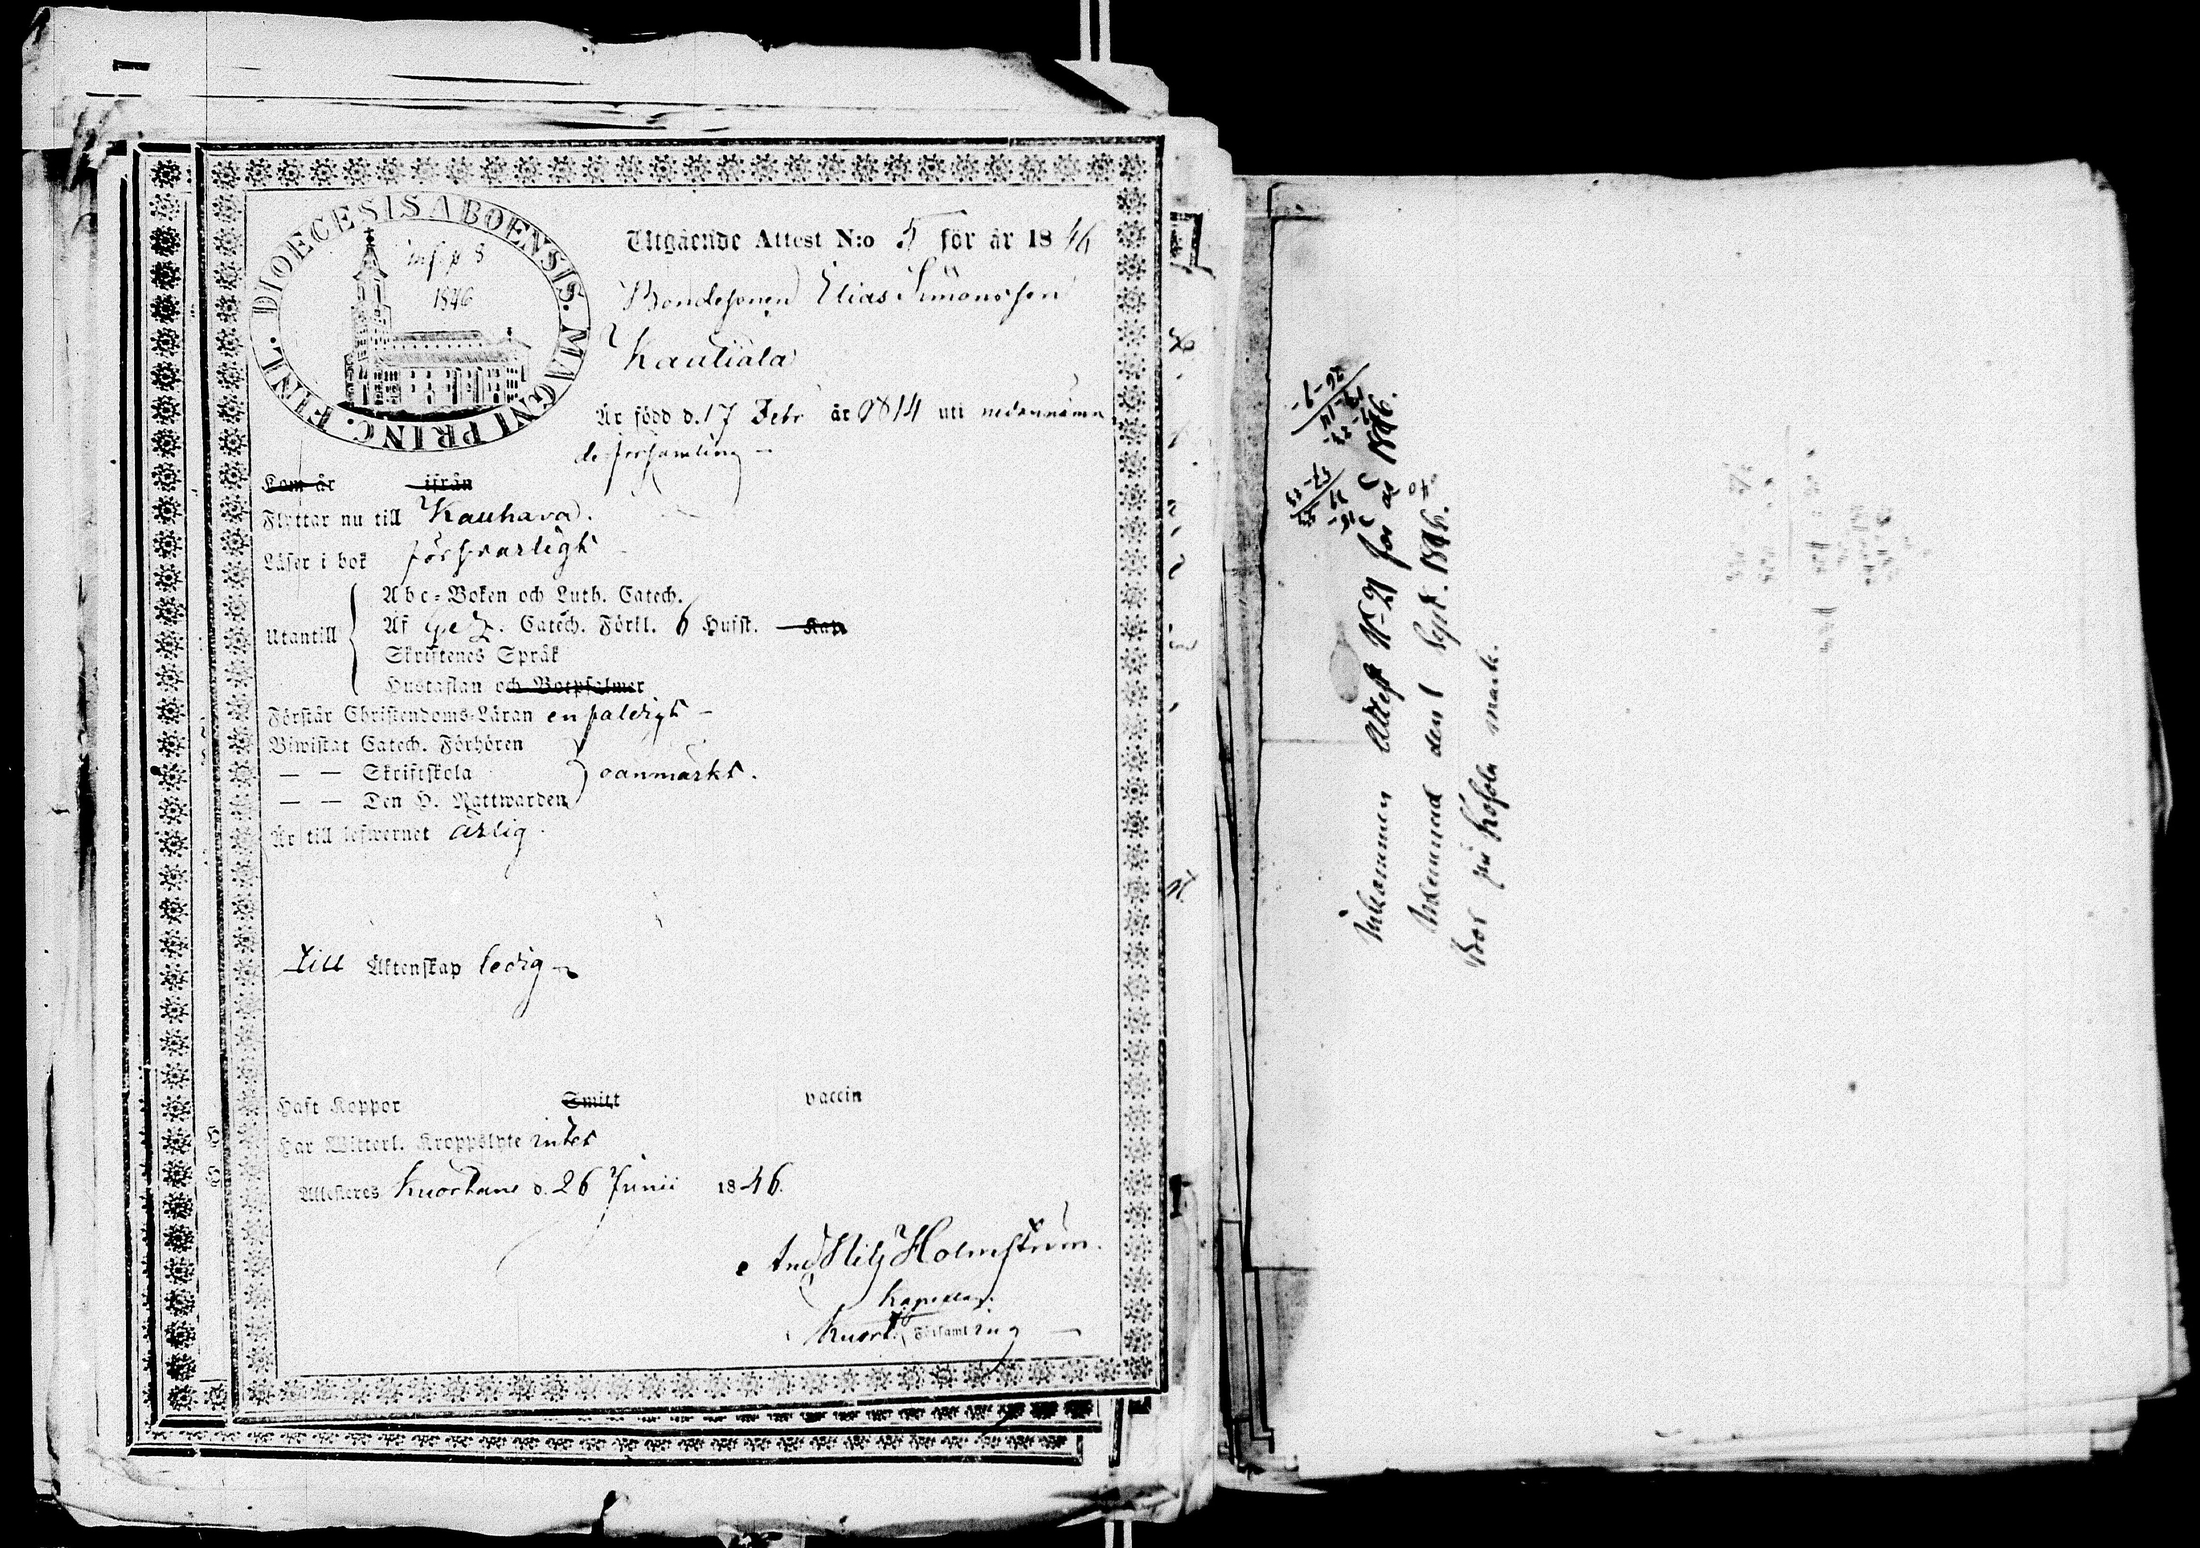 DIOECESIS ABOENSIS. MAGNI PRINC. FINL.
inf. p 8
1846
Utgående Attest N:o 5 för år 1846
Bondesonen Elias Simonsson
Kautiala
Är född d. 17 Febr år 1814 uti nedannämn
de församling –
Kom år ifrån
Flyttar nu till Kauhava.
Läser i bok försvarligt
Utantill
Abc-Boken och Luth. Catech.
Af Gez. Catech. Förkl. 6 Hufst. Kap.
Skriftenes Språk
Hustaflan och Botpsalmer
Förstår Christendoms-Läran enfaldigt –
Biwistat Catech. Förhören
— — Skriftskola oanmärkt.
— — Den H. Nattwarden
Är till lefwernet ärlig.
Till Äktenskap ledig –
Haft Koppor Smitt vaccin
Har Witterl. Kroppslyte intet
Attesteras Kuortane d. 26 Junii 1846.
And Nils Holmström.
Kapellan.
Kuort. Församling
Inkommen Attest N 21 för år 1846.
Inlemnad den 1 Sept. 1846.
Bor på Kosola mark.